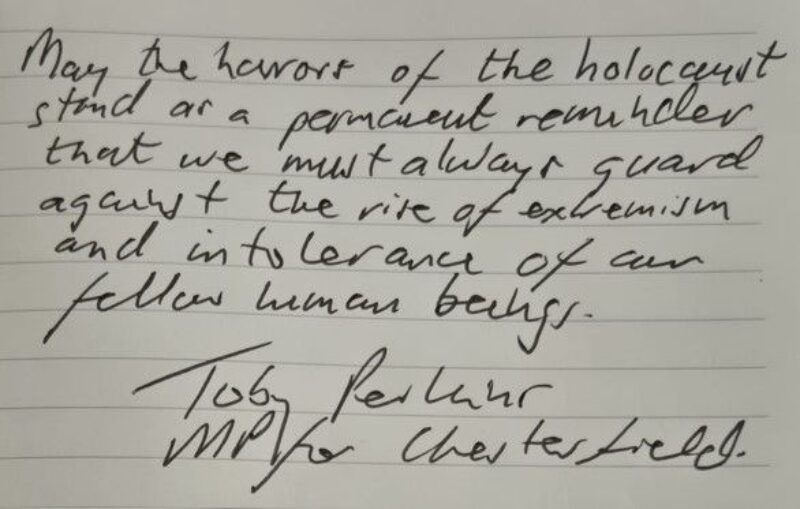 May the horrors of the holocaust
stand as a permanent reminder
that we must always guard
against the rise of extremism
and intolerance of our
fellow human beings.
Toby Perkins
MP for Chesterfield.